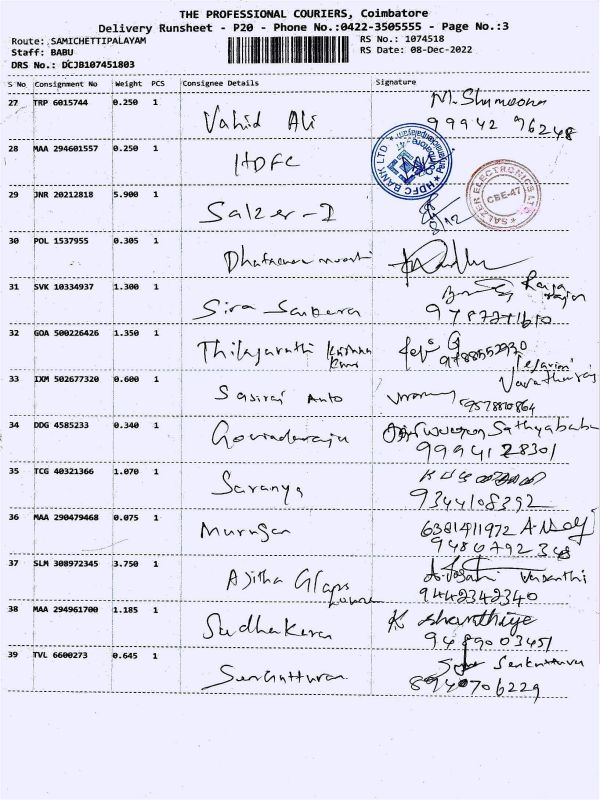 THE PROFESSIONAL COURIERS, Coimbatore
Delivery Runsheet - P20 - Phone No.:0422-3505555 - Page No.:3
Route: SAMICHETTIPALAYAM
RS No.: 1074518
Staff: BABU
RS Date: 08-Dec-2022
DRS No.: DCJB107451803
S No Consignment No Weight PCS Consignee Details Signature
27 TRP 6015744 0.250 1 Vahid Ali
99942 96248
28 MAA 294601557 0.250 1 HDFC
HDFC BANK LTD
29 JNR 20212818 5.900 1 Salzer-I
SALZER ELECTRONICS LTD. CBE-47
8/12
30 POL 1537955 0.305 1
31 SVK 10334937 1.300 1 Siva
32 GOA 500226426 1.350 1
33 IXM 502677320 0.600 1 Auto
9578810864
34 DDG 4585233 0.340 1 Govindaraju Sathyababu
99941 28301
35 TCG 40321366 1.070 1 Saranya
9344108392
36 MAA 290479468 0.075 1 Murugan 6381411972
37 SLM 308972345 3.750 1 Ajitha Glass
9442342340
38 MAA 294961700 1.185 1 Sudhakaran K Shanthiya
9489003451
39 TVL 6600273 0.645 1
8940706229